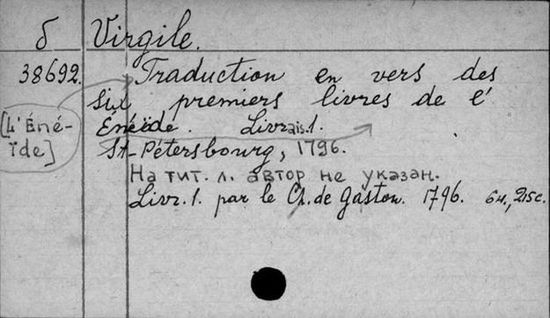 δ Virgile.
38692. Traduction en vers des
six premiers livres de l'
[L'Éné-
ïde]
Énéïde. Livrais. 1.
St-Pétersbourg, 1796.
На тит. л. автор не указан.
Livr. 1. par le Ch. de Gaston. 1796. 64, 215c.